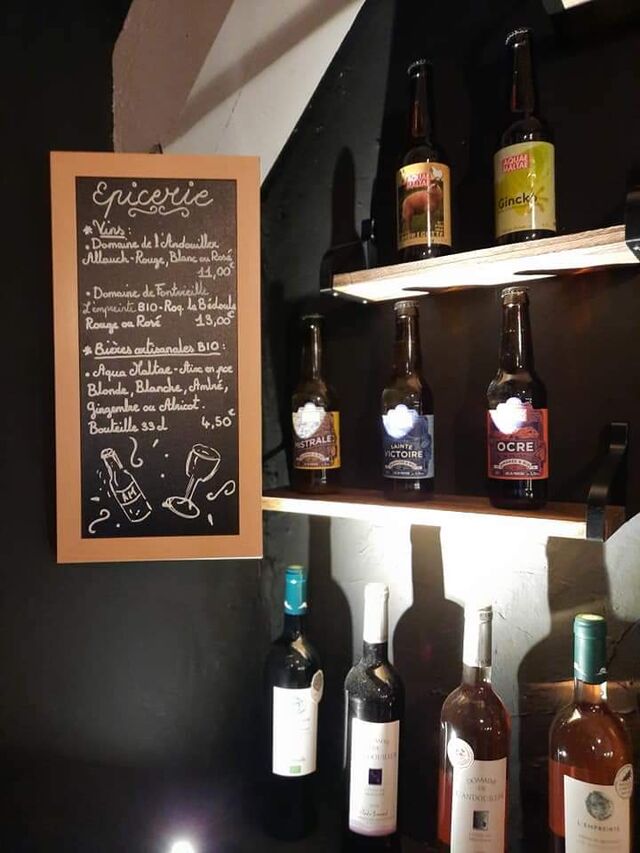 Epicerie
* Vins :
• Domaine de l'Andouiller
Allauch - Rouge, Blanc ou Rosé
11,00€
• Domaine de Fontvieille
L'empreinte BIO - Roq. la Bédoule
Rouge ou Rosé 13,00€
* Bières artisanales BIO :
• Aqua Maltae - Aix en pce
Blonde, Blanche, Ambré,
gingembre ou Abricot.
Bouteille 33cl 4,50€
AM
AQUAE
MALTAE
AQUAE
MALTAE
Ginck
MISTRALE
SAINTE
VICTOIRE
OCRE
DOMAINE
DE
L'EMPREINTE